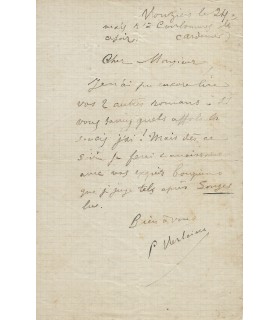 Vouziers le 24
mais à Coulommes
Cher Monsieur,
Je n'ai pu encore lire
vos 2 autres romans. Si
vous saviez quels
j'ai ! Mais dès ce
soir je ferai connaissance
avec vos
que je juge tels après Songes
lus.
Bien à vous
P Verlaine